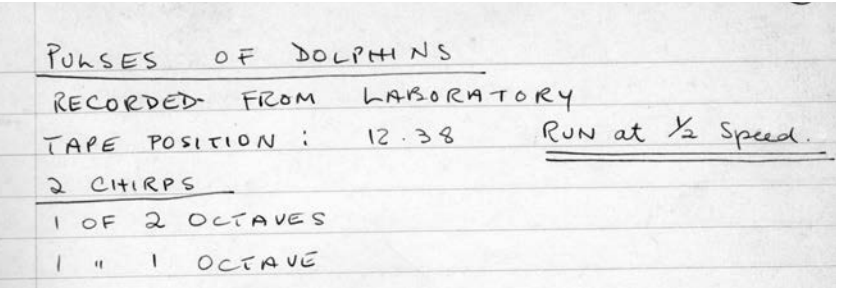 PULSES OF DOLPHINS
RECORDED FROM LABORATORY
TAPE POSITION : 12.38 RUN at ½ Speed.
2 CHIRPS
1 OF 2 OCTAVES
1 " 1 OCTAVE